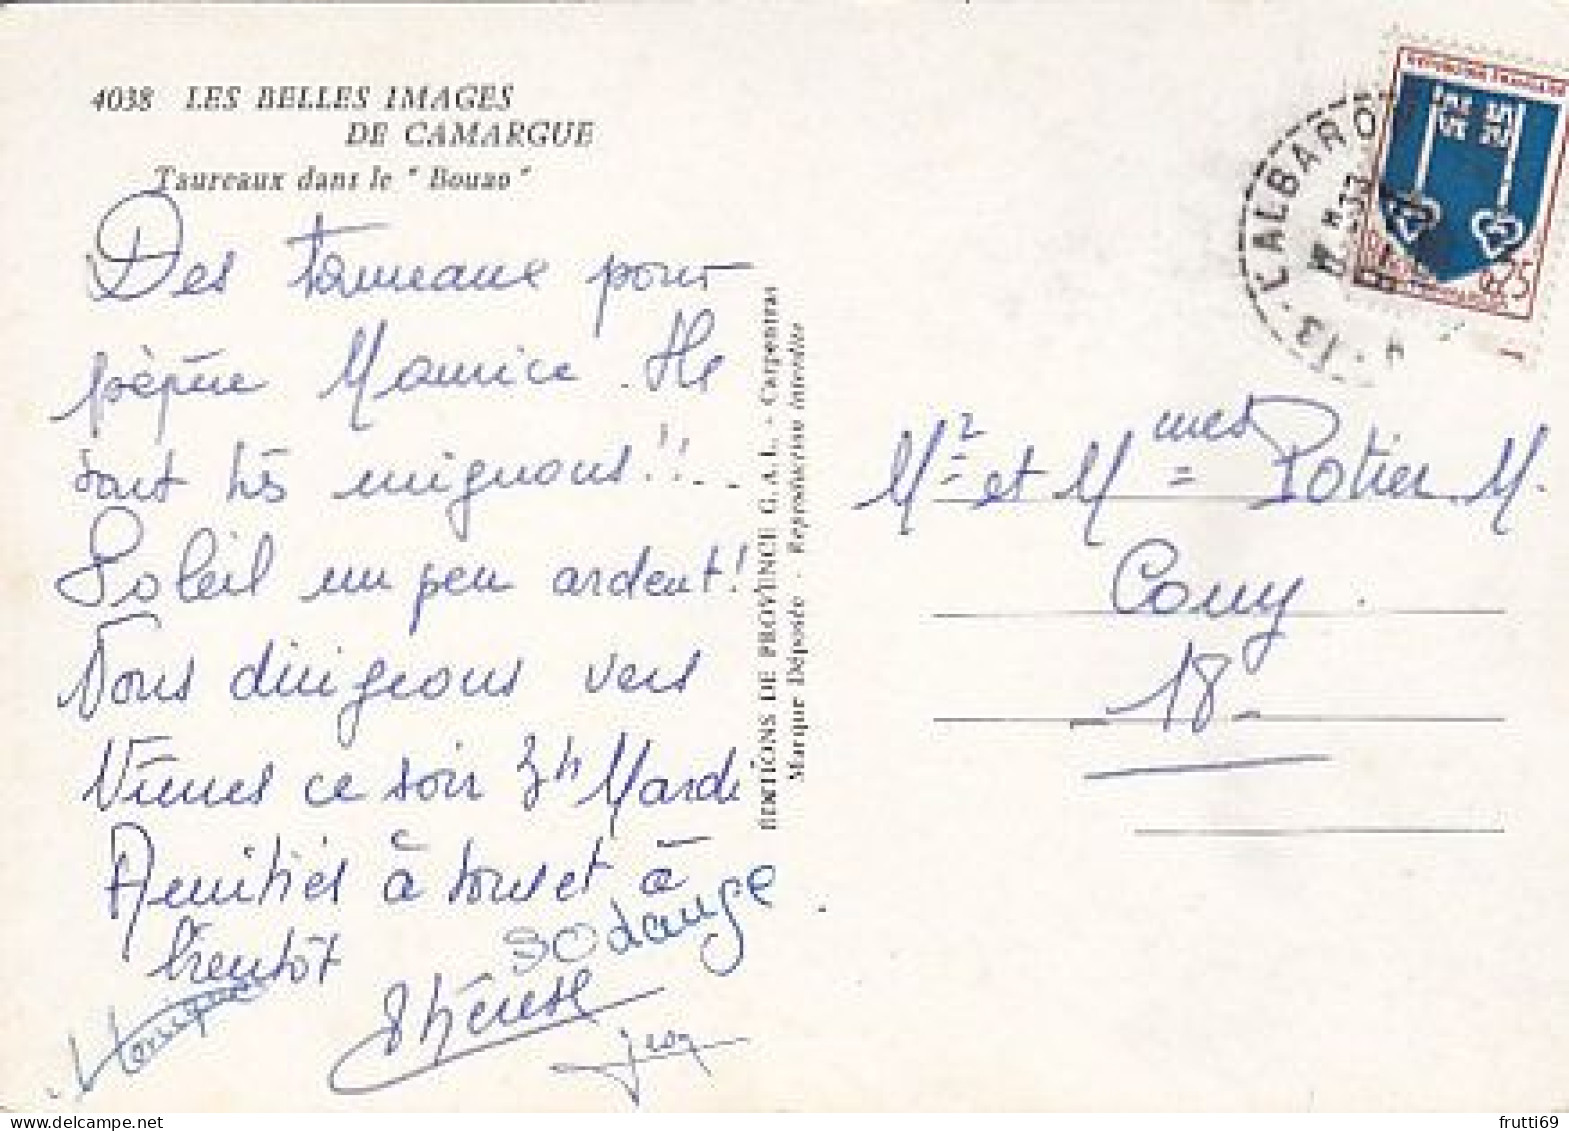 4038 LES BELLES IMAGES
DE CAMARGUE
Taureaux dans le "Bouao"
Des taureaux pour
pépère Maurice. Ils
sont très mignons!!..
Soleil un peu ardent!
Nous dirigeons vers
Nîmes ce soir 3h Mardi
Amitiés à tous et à
bientôt
Solange
Monique
Thérèse
EDITIONS DE PROVENCE G.A.L. - Carpentras
Marque Déposée - Reproduction interdite
13. L'ALBARO
REPUBLIQUE FRANÇAISE
0,25
Mr et Mmes Potier M.
Couy.
18-
frutti69